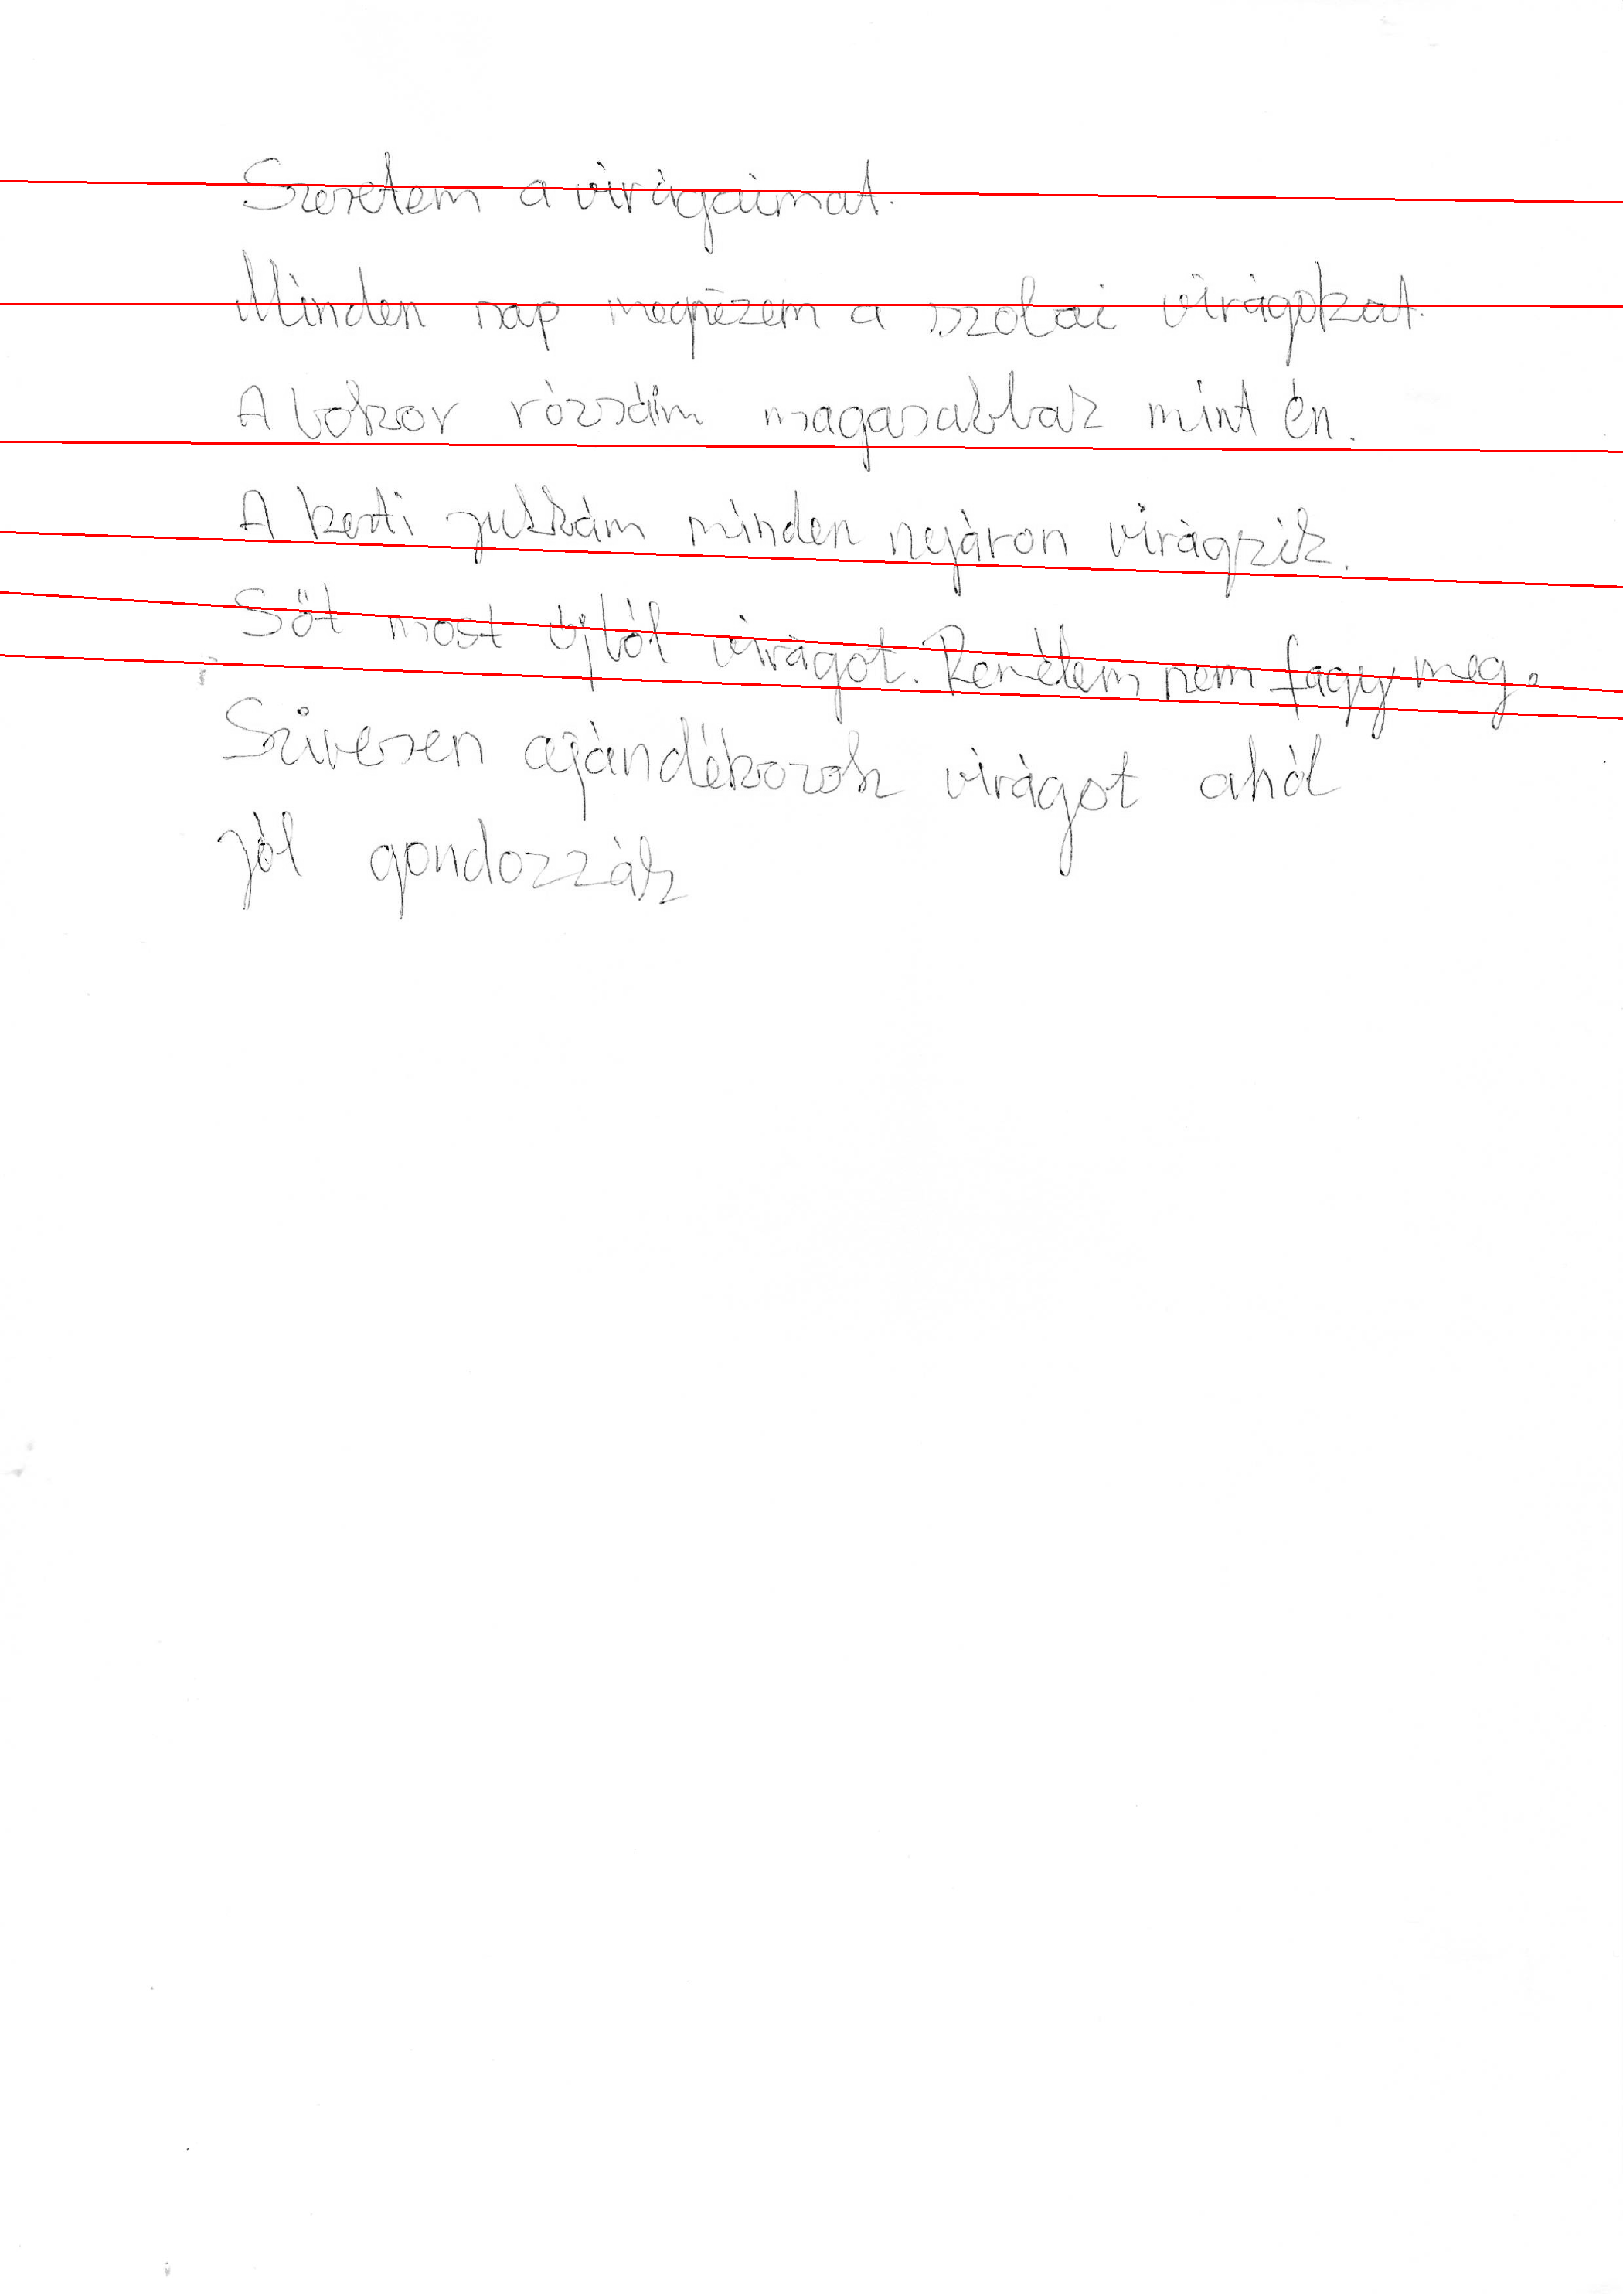 Szeretem a virágaimat.
Minden nap megnézem a szobai virágokat.
A bokor rózsáim magasabbak mint én.
A kerti jukkám minden nyáron virágzik.
Sőt most újból virágot. Remélem nem fagy meg.
Szivesen ajándékozok virágot ahól
jól gondozzák